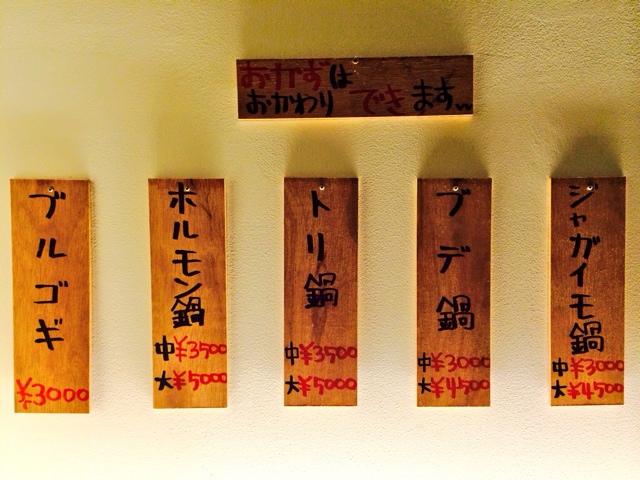 おかずは
おかわりできます〜
ブルゴギ
¥3000
ホルモン鍋
中¥3500
大¥5000
トリ鍋
中¥3500
大¥5000
ブデ鍋
中¥3000
大¥4500
ジャガイモ鍋
中¥3000
大¥4500